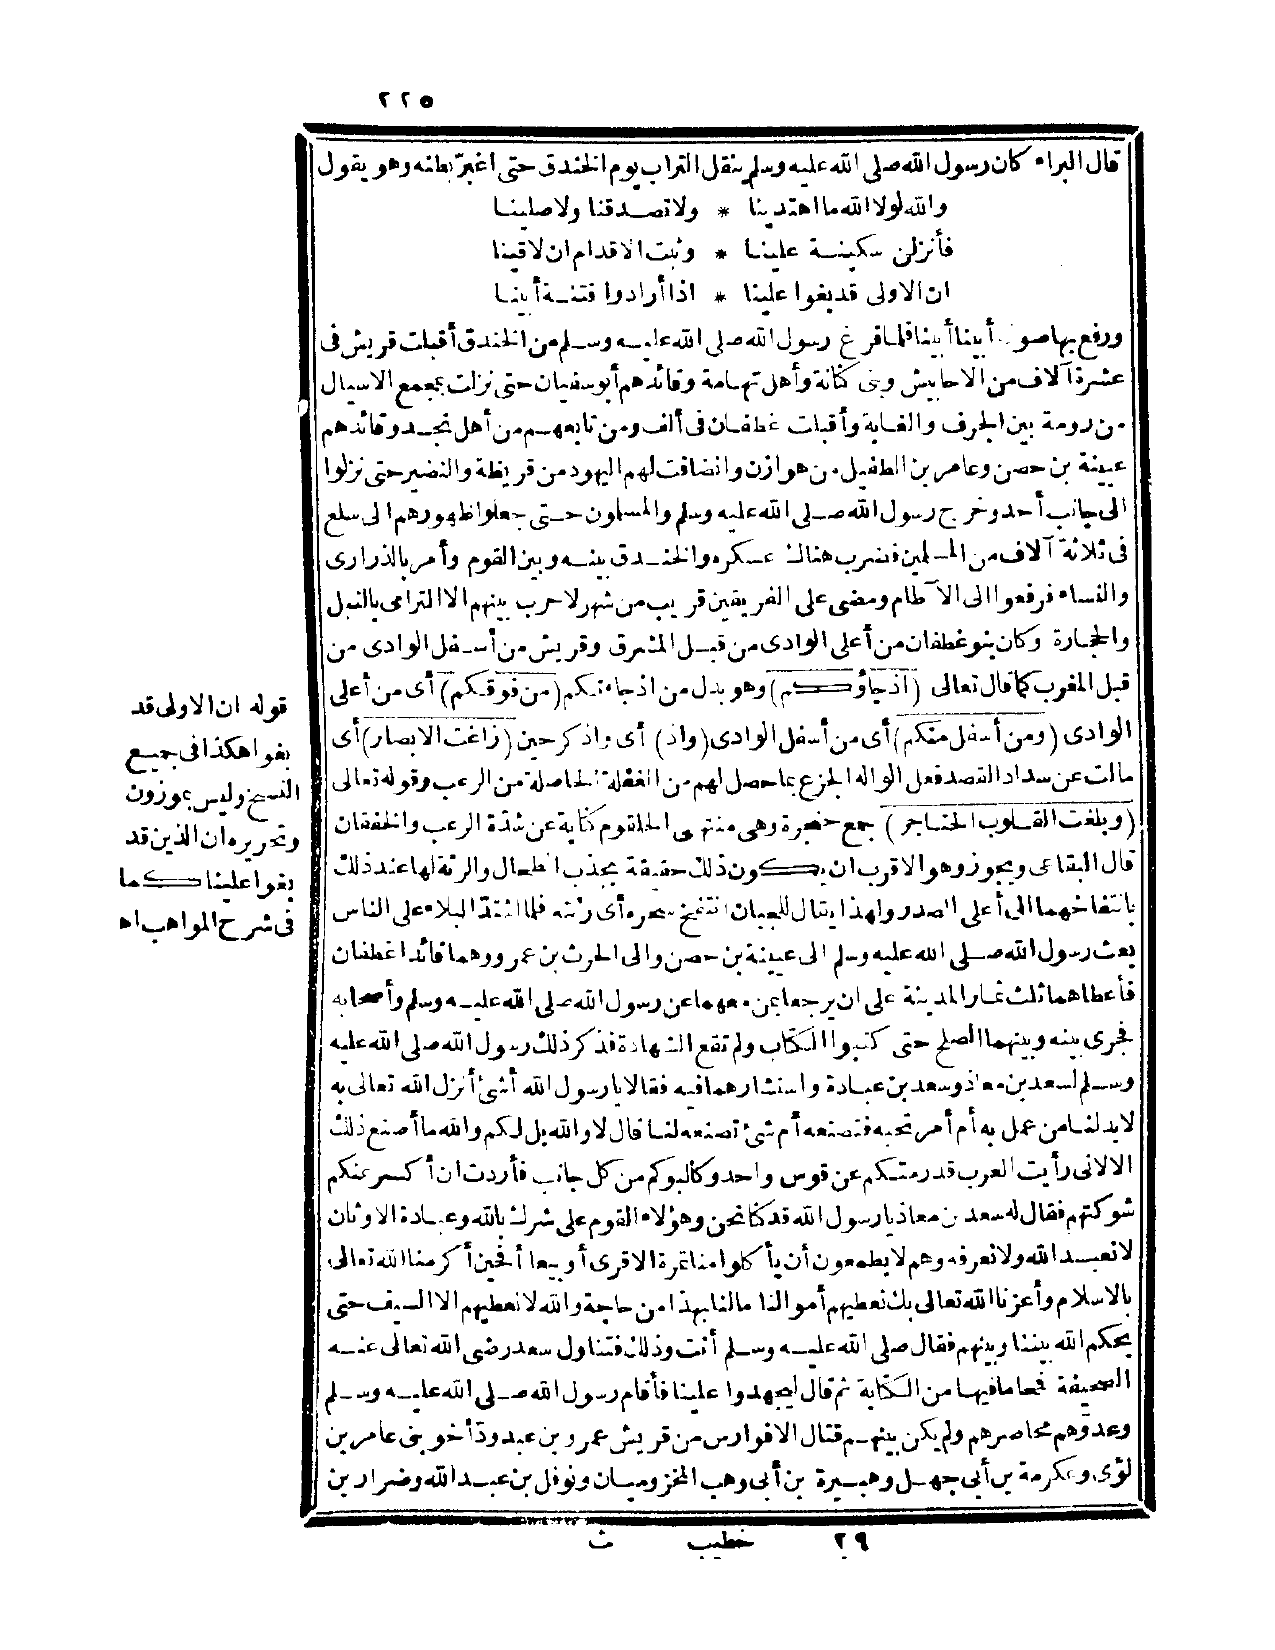 ٢٢٥
قال البراء كان رسول الله صلى الله عليه وسلم ينقل التراب يوم الخندق حتى اغبرّ بطنه وهو يقول
والله لولا الله ما اهتدينا * ولا تصدقنا ولا صلينا
فأنزلن سكينة علينا * وثبت الاقدام ان لاقينا
ان الاولى قد بغوا علينا * اذا أرادوا فتنة أبينا
ورفع بها صوته أبينا أبينا فلما فرغ رسول الله صلى الله عليه وسلم من الخندق أقبلت قريش فى
عشرة آلاف من الاحابيش وبنى كنانة وأهل تهامة وقائدهم أبو سفيان حتى نزلت بمجمع الاسيال
من رومة بين الجرف والغابة وأقبلت غطفان فى ألف ومن تابعهم من أهل نجد وقائدهم
عيينة بن حصن وعامر بن الطفيل من هوازن وانضافت لهم اليهود من قريظة والنضير حتى نزلوا
الى جانب أحد وخرج رسول الله صلى الله عليه وسلم والمسلمون حتى جعلوا ظهورهم الى سلع
فى ثلاثة آلاف من المسلمين فضرب هناك عسكره والخندق بينه وبين القوم وأمر بالذرارى
والنساء فرفعوا الى الآطام ومضى على الفريقين قريب من شهر لا حرب بينهم الا الترامى بالنبل
والحجارة وكان بنو غطفان من أعلى الوادى من قبل المشرق وقريش من أسفل الوادى من
قبل المغرب كما قال تعالى (اذ جاؤكم) وهو بدل من اذ جاءتكم (من فوقكم) أى من أعلى
الوادى (ومن أسفل منكم) أى من أسفل الوادى (واذ) أى واذكر حين (زاغت الابصار) أى
مالت عن سداد القصد فعل الواله الجزع بما حصل لهم من الغفلة الحاصلة من الرعب وقوله تعالى
(وبلغت القلوب الحناجر) جمع حنجرة وهى منتهى الحلقوم كناية عن شدة الرعب والخفقان
قال البقاعى ويجوز وهو الاقرب ان يكون ذلك حقيقة بجذب الطحال والرئة لها عند ذلك
بانتفاخهما الى أعلى الصدر ولهذا يقال للجبان انتفخ سحره أى رئته فلما اشتد البلاء على الناس
بعث رسول الله صلى الله عليه وسلم الى عيينة بن حصن والى الحرث بن عمرو وهما قائدا غطفان
فأعطاهما ثلث ثمار المدينة على ان يرجعا بمن معهما عن رسول الله صلى الله عليه وسلم وأصحابه
فجرى بينه وبينهما الصلح حتى كتبوا الكتاب ولم تقع الشهادة فذكر ذلك رسول الله صلى الله عليه
وسلم لسعد بن معاذ وسعد بن عبادة واستشارهما فيه فقالا يا رسول الله أشئ أنزل الله تعالى به
لا بد لنا من عمل به أم أمر تحبه فتصنعه أم شئ تصنعه لنا قال لا والله بل لكم والله ما أصنع ذلك
الا لانى رأيت العرب قد رمتكم عن قوس واحد وكالبوكم من كل جانب فأردت ان أكسر عنكم
شوكتهم فقال له سعد بن معاذ يا رسول الله قد كنا نحن وهؤلاء القوم على شرك بالله وعبادة الاوثان
لا نعبد الله ولا نعرفه وهم لا يطمعون أن يأكلوا منا ثمرة الا قرى أو بيعا أفحين أكرمنا الله تعالى
بالاسلام وأعزنا الله تعالى بك نعطيهم أموالنا مالنا بهذا من حاجة والله لا نعطيهم الا السيف حتى
يحكم الله بيننا وبينهم فقال صلى الله عليه وسلم أنت وذلك فتناول سعد رضى الله تعالى عنه
الصحيفة فمحا ما فيها من الكتابة ثم قال ليجهدوا علينا فأقام رسول الله صلى الله عليه وسلم
وعدوّهم محاصرهم ولم يكن بينهم قتال الا فوارس من قريش عمرو بن عبد ودّ أخو بنى عامر بن
لؤى وعكرمة بن أبى جهل وهبيرة بن أبى وهب المخزوميان ونوفل بن عبد الله وضرار بن
قوله ان الاولى قد
بغوا هكذا فى جميع
النسخ وليس بموزون
وتحريره ان الذين قد
بغوا علينا كما
فى شرح المواهب اه
٢٩ خطيب ث